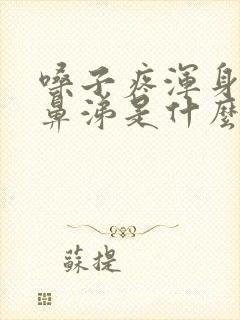 嗓子疼渾身
鼻涕是什麼
蘇提